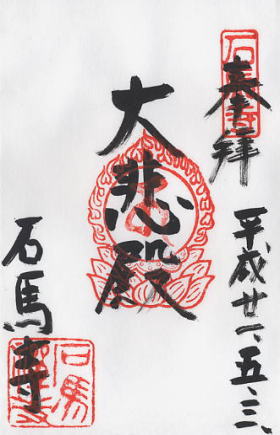 奉拝
平成廿一、五、三、
大悲殿
石馬寺
石馬